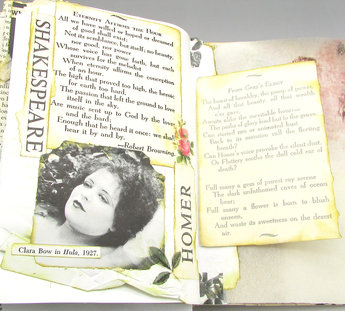 ETERNITY AFFIRMS THE HOUR
All we have willed or hoped or dreamed
of good shall exist;
Not its semblance, but itself; no beauty,
nor good, nor power
Whose voice has gone forth, but each
survives for the melodist
When eternity affirms the conception
of an hour.
The high that proved too high, the heroic
for earth too hard,
The passion that left the ground to love
itself in the sky,
Are music sent up to God by the lover
and the bard;
Enough that he heard it once: we shall
hear it by and by.
—Robert Browning.
SHAKESPEARE
Clara Bow in Hula, 1927.
HOMER
From Gray's Elegy
The boast of heraldry, the pomp of power,
And all that beauty, all that wealth
e'er gave,
Awaits alike the inevitable hour:
The paths of glory lead but to the grave.
Can storied urn or animated bust
Back to its mansion call the fleeting
breath?
Can Honor's voice provoke the silent dust,
Or Flattery soothe the dull cold ear of
death?
Full many a gem of purest ray serene
The dark unfathomed caves of ocean
bear;
Full many a flower is born to blush
unseen,
And waste its sweetness on the desert
air.